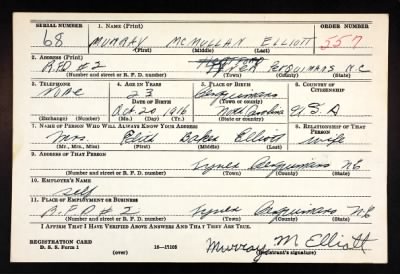 SERIAL NUMBER 1. NAME (Print) ORDER NUMBER
68 MURRAY McMULLAN ELLIOTT 557
(First) (Middle) (Last)
2. ADDRESS (Print)
R.F.D #2 TYNER PERQUIMANS N.C
(Number and street or R. F. D. number) (Town) (County) (State)
3. TELEPHONE 4. AGE IN YEARS 5. PLACE OF BIRTH 6. COUNTRY OF CITIZENSHIP
None 23 Perquimans
DATE OF BIRTH (Town or county)
Oct. 20 1916 North Carolina U.S.A
(Exchange) (Number) (Mo.) (Day) (Yr.) (State or country)
7. NAME OF PERSON WHO WILL ALWAYS KNOW YOUR ADDRESS 8. RELATIONSHIP OF THAT PERSON
Mrs. Baker Elliott Wife
(Mr., Mrs., Miss) (First) (Middle) (Last)
9. ADDRESS OF THAT PERSON
Tyner Perquimans N.C
(Number and street or R. F. D. number) (Town) (County) (State)
10. EMPLOYER'S NAME
Self
11. PLACE OF EMPLOYMENT OR BUSINESS
R.F.D #2 Tyner Perquimans N.C
(Number and street or R. F. D. number) (Town) (County) (State)
I AFFIRM THAT I HAVE VERIFIED ABOVE ANSWERS AND THAT THEY ARE TRUE.
REGISTRATION CARD
D. S. S. Form 1 (over) 16—17105 Murray M Elliott
(Registrant's signature)